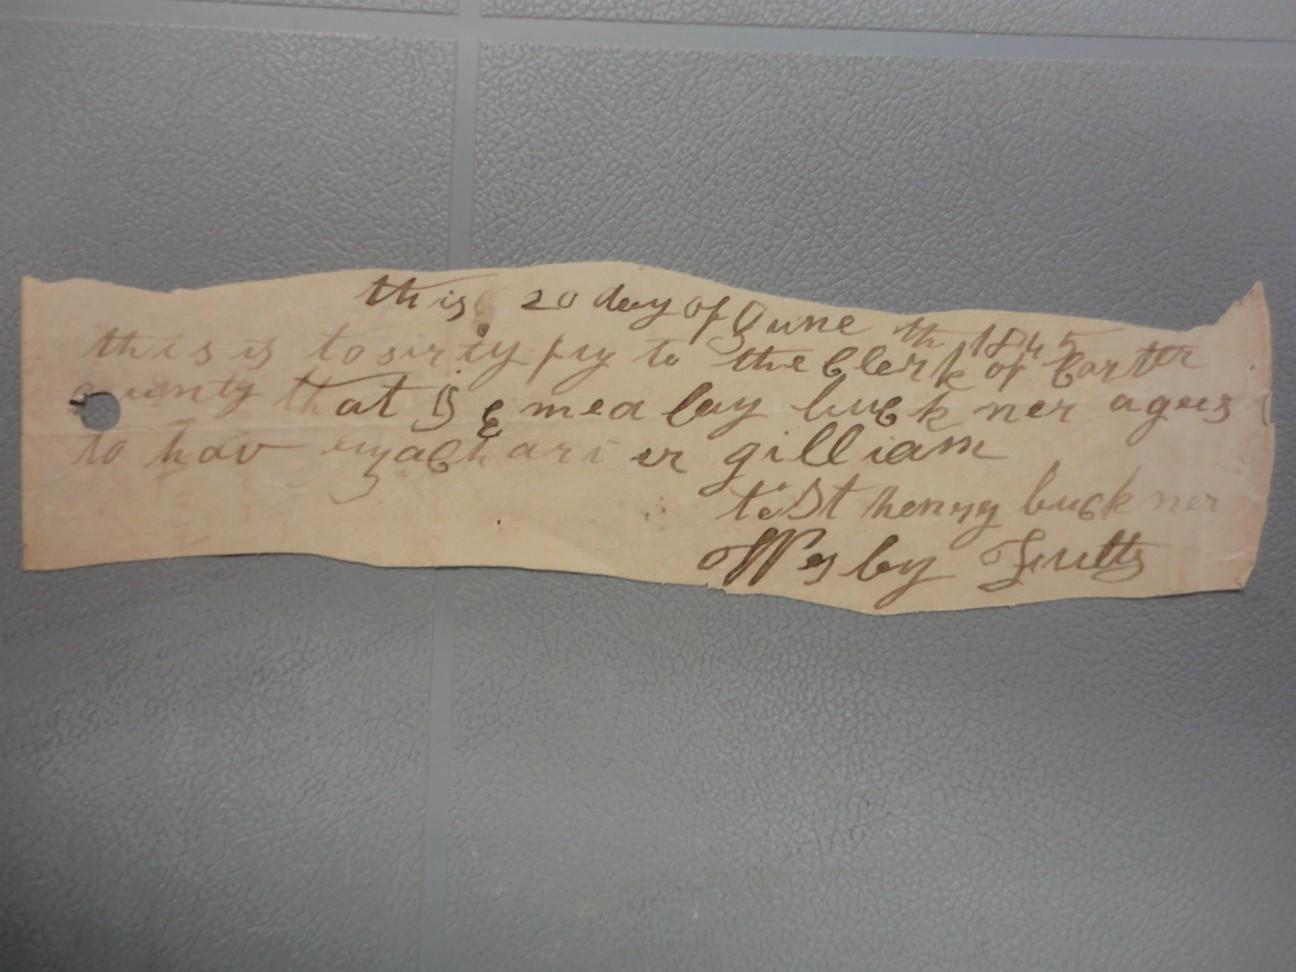 this 20 day of June th 1845
this is to sirtyfry to the Clerk of Carter
county that is emea lay buckner agees
to hav gilliam
test henry buckner
by Fults